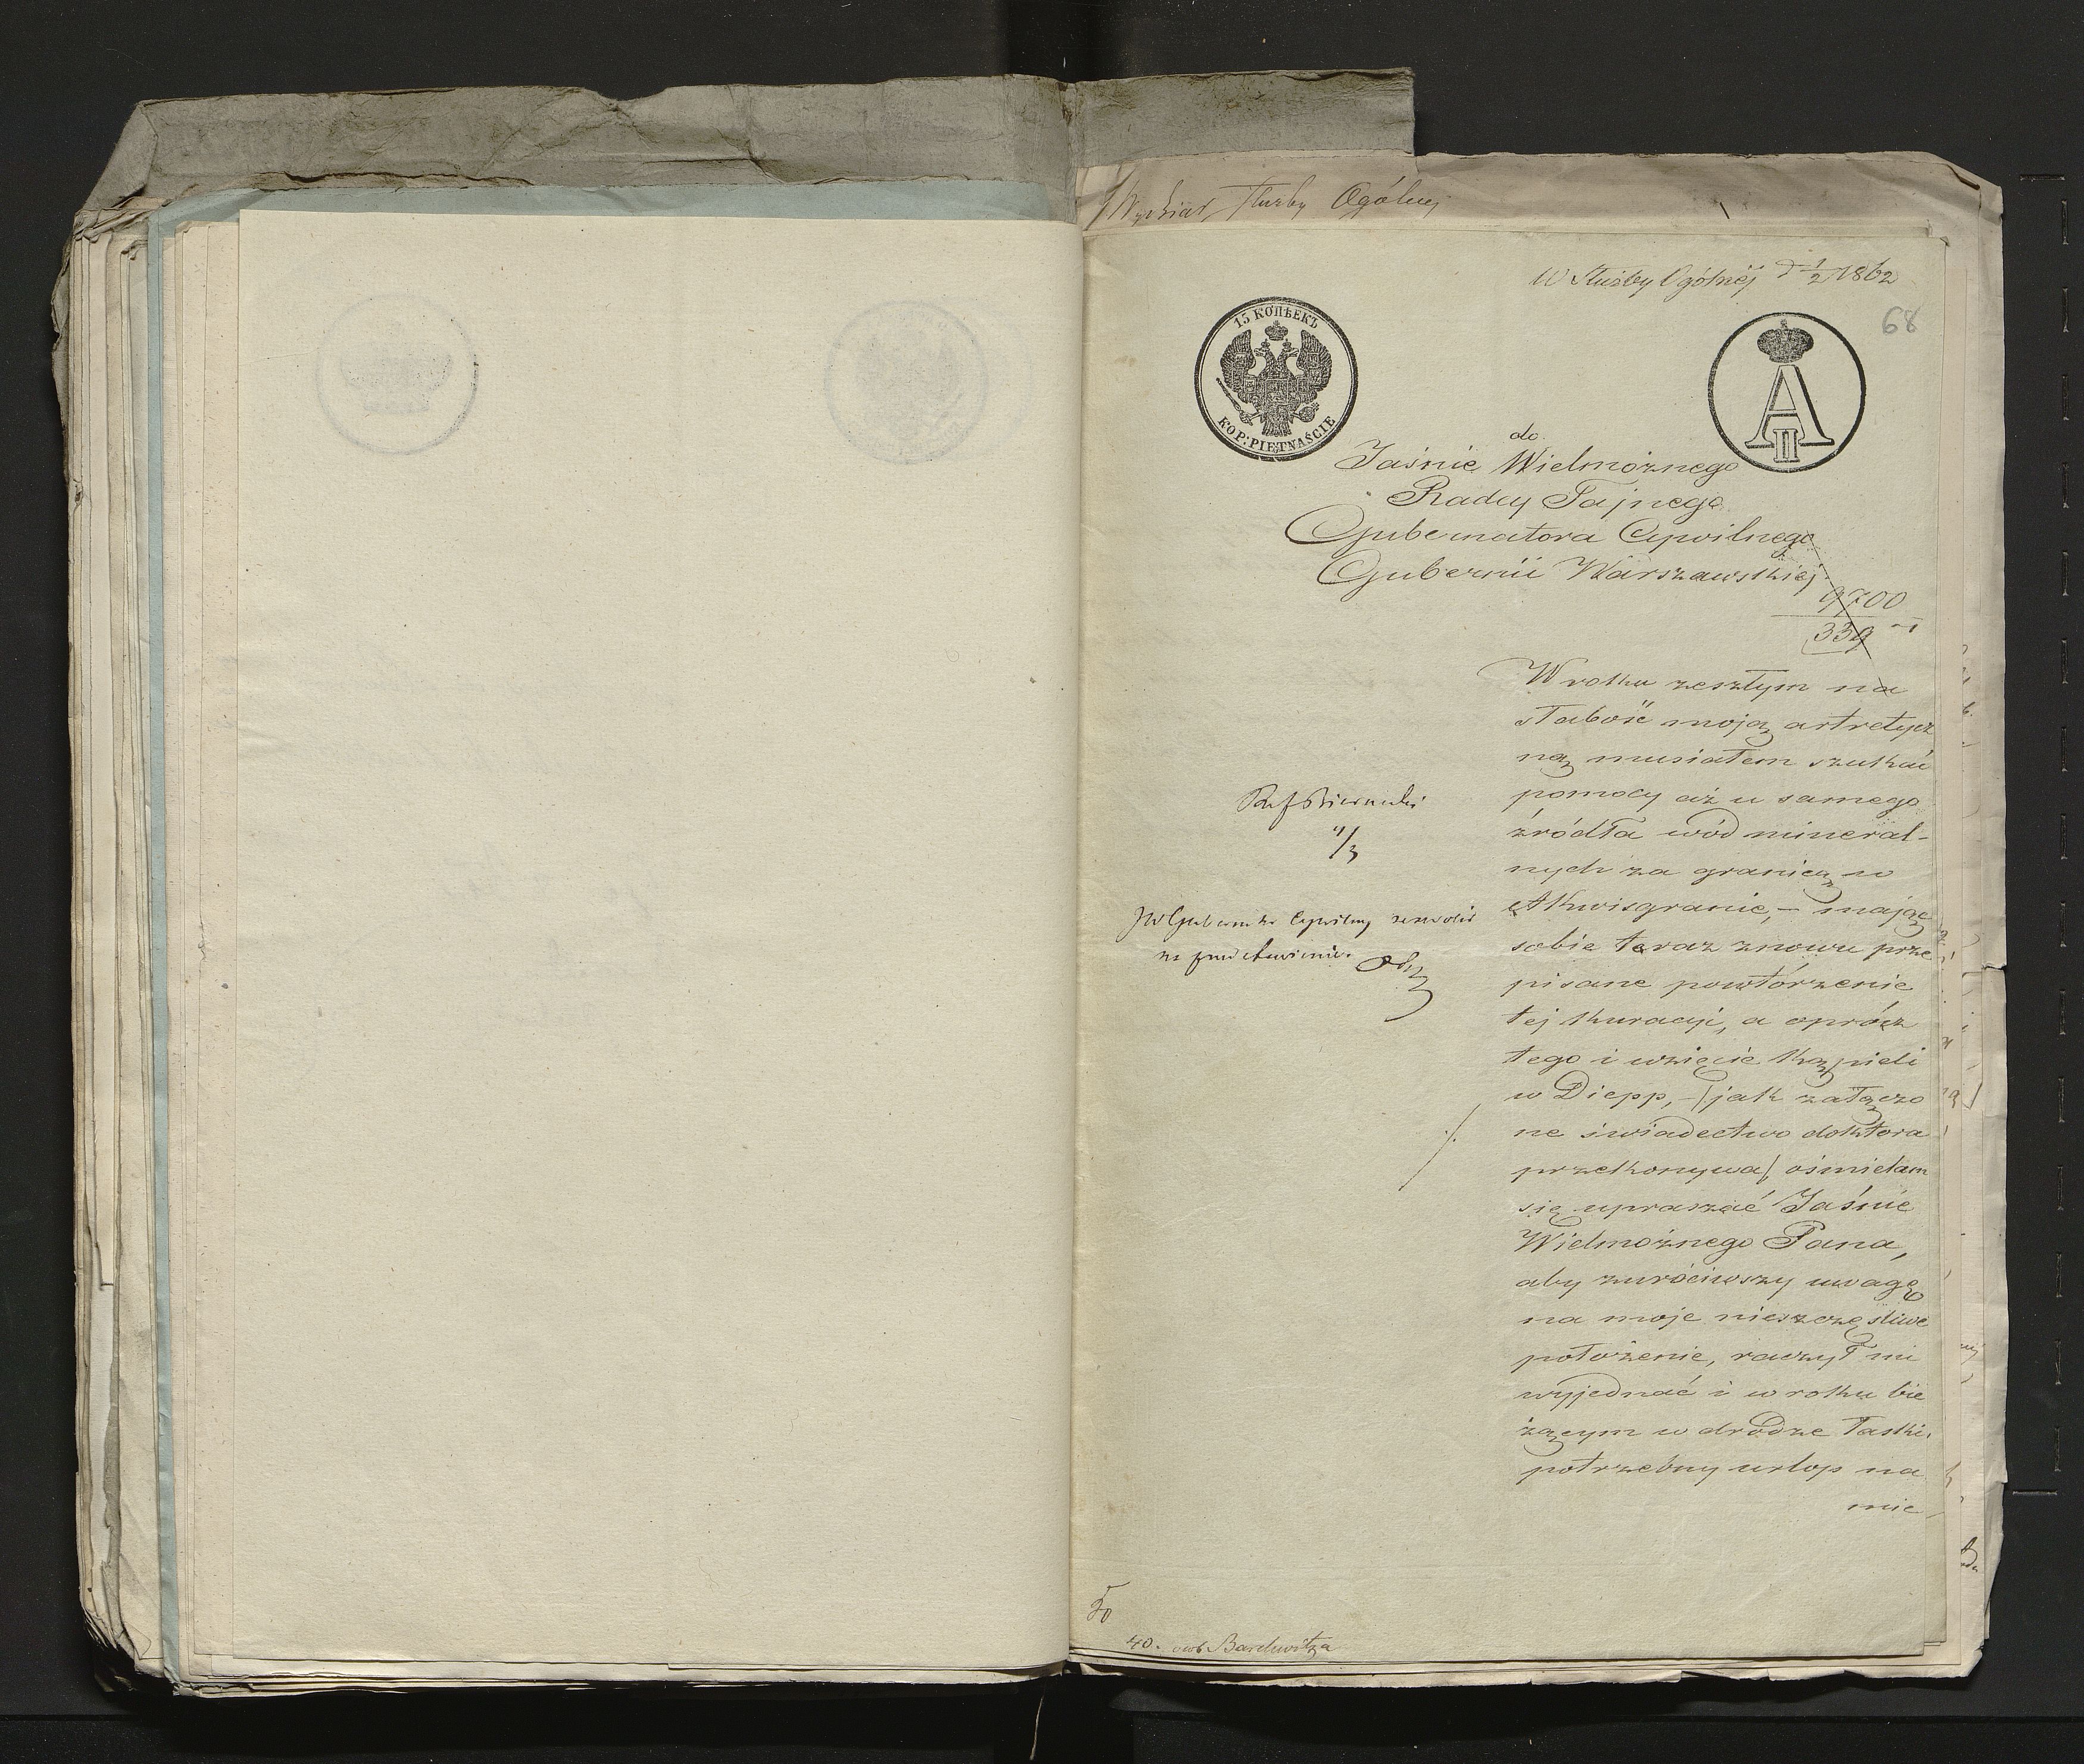 Służby Ogólnej
W Służby Ogólnej d 1/2 1862
68
15 КОПѢЕКЪ
KOP: PIĘTNAŚCIE
A II
do
Jaśnie Wielmożnego
Radcy Tajnego
Gubernatora Cywilnego
Gubernii Warszawskiej
9700
339
W roku zeszłym na
słabość moją artretycz
ną musiałem szukać
pomocy aż u samego
źródła wód mineral-
nych za granicą w
Akwisgranie, – mając
sobie teraz znowu prze
pisane powtórzenie
tej kuracyi, a oprócz
tego i wzięcie kąpieli
w Diepp, – /jak załączo
ne świadectwo doktora
przekonywa/, ośmielam
się upraszać Jaśnie
Wielmożnego Pana,
aby zwróciwszy uwagę
na moje nieszczęśliwe
położenie, raczył mi
wyjednać i w roku bie
żącym w drodze łaski
potrzebny urlop na
mie
JW Gubernator Cywilny zezwolił
na przedstawienie.
40. Bardwitza